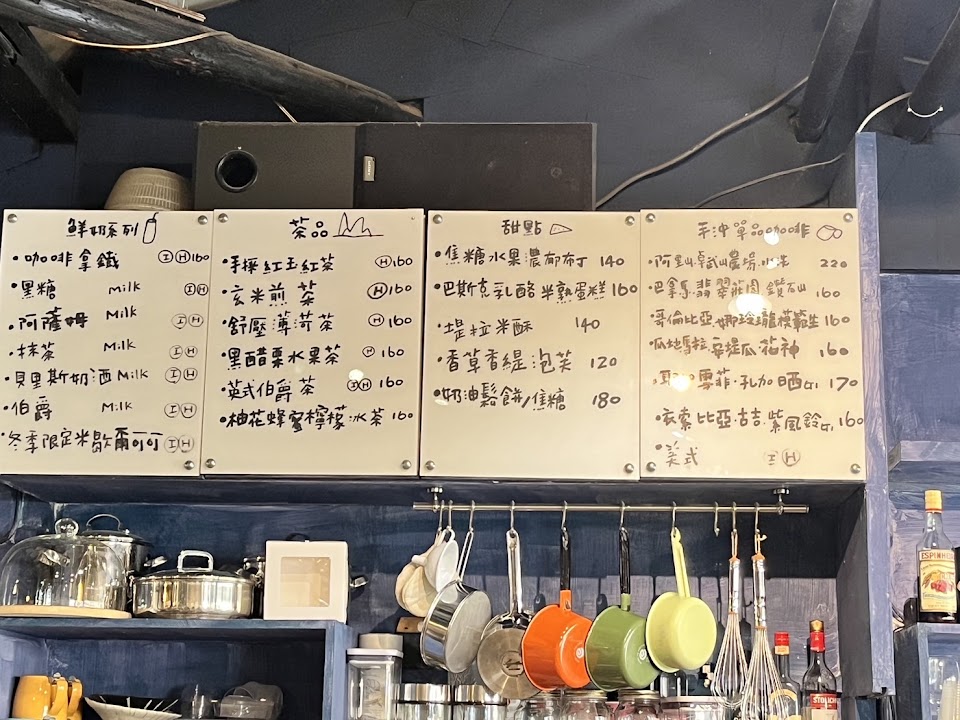 鮮奶系列
·咖啡拿鐵 I H 160
·黑糖 milk I H
·阿薩姆 Milk I H
·抹茶 Milk I H
·貝里斯奶酒 Milk I H
·伯爵 Milk I H
·冬季限定米歇爾可可 I H
茶品
·手採紅玉紅茶 H 160
·玄米煎茶 H 160
·舒壓薄荷茶 H 160
·黑醋栗水果茶 H 160
·英式伯爵茶 I H 160
·柚花蜂蜜檸檬·冰茶 160
甜點
·焦糖水果濃郁布丁 140
·巴斯克乳酪半熟蛋糕 160
·堤拉米酥 140
·香草香緹泡芙 120
·奶油鬆餅/焦糖 180
手沖單品咖啡
·阿里山·卓武山農場·水洗 220
·巴拿馬·翡翠莊園·鑽石山 160
·哥倫比亞·娜玲瓏模範生 160
·瓜地馬拉·安提瓜·花神 160
雪菲·孔加 日晒 G1 170
·衣索比亞·吉·紫風鈴 G1 160
·美式 I H
ESPINHEI
STOLICH